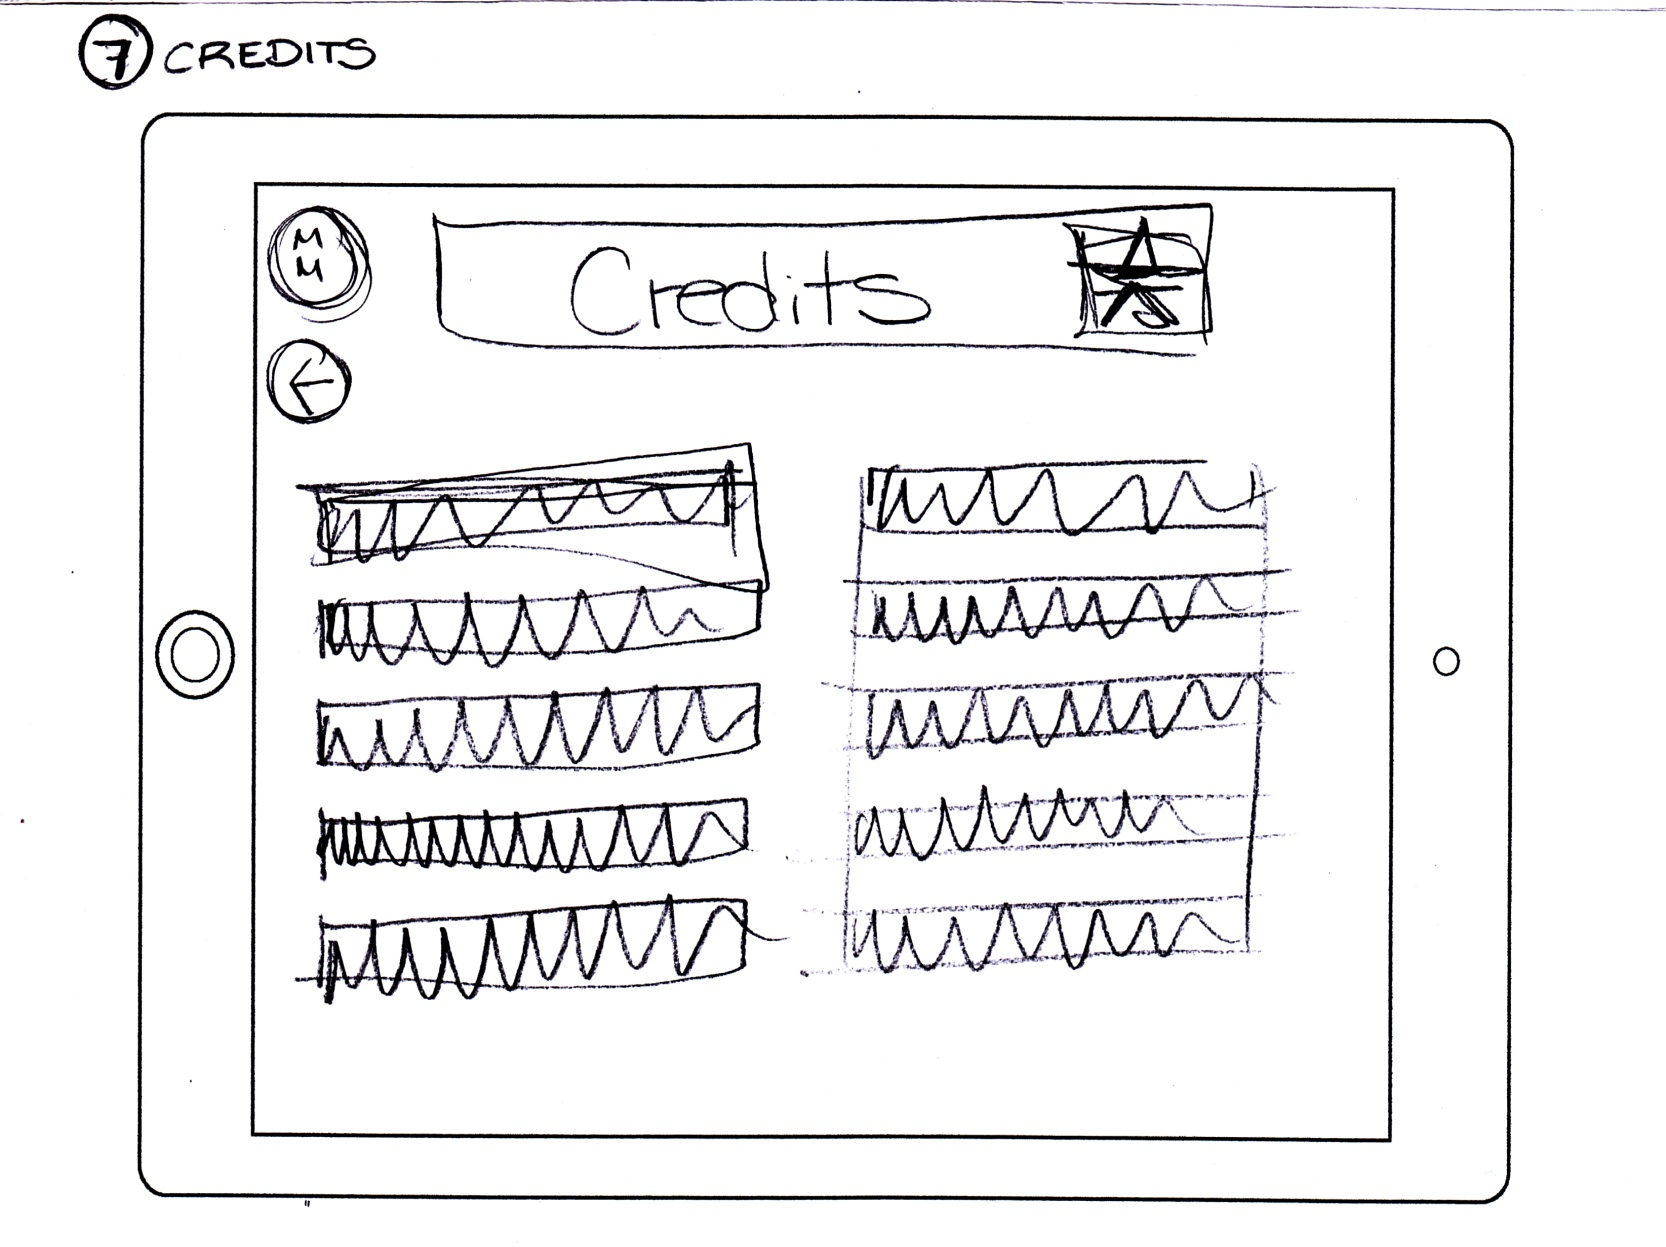 7 CREDITS
M
M
Credits